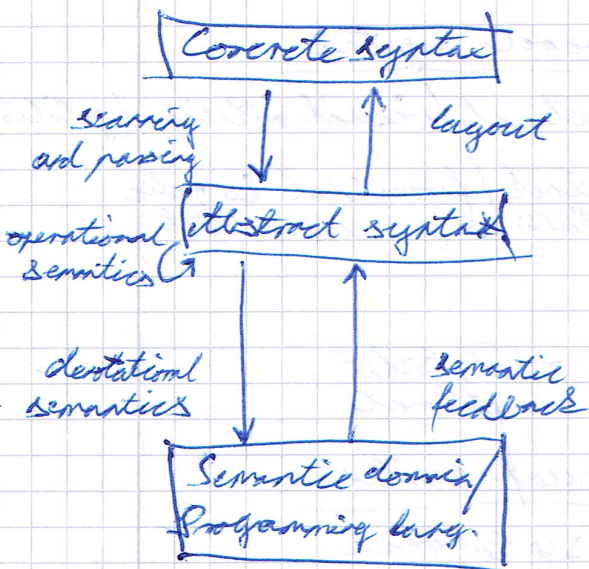 Concrete syntax
scanning
and parsing
layout
Abstract syntax
operational
semantics
denotational
semantics
semantic
feedback
Semantic domain/
Programming lang.